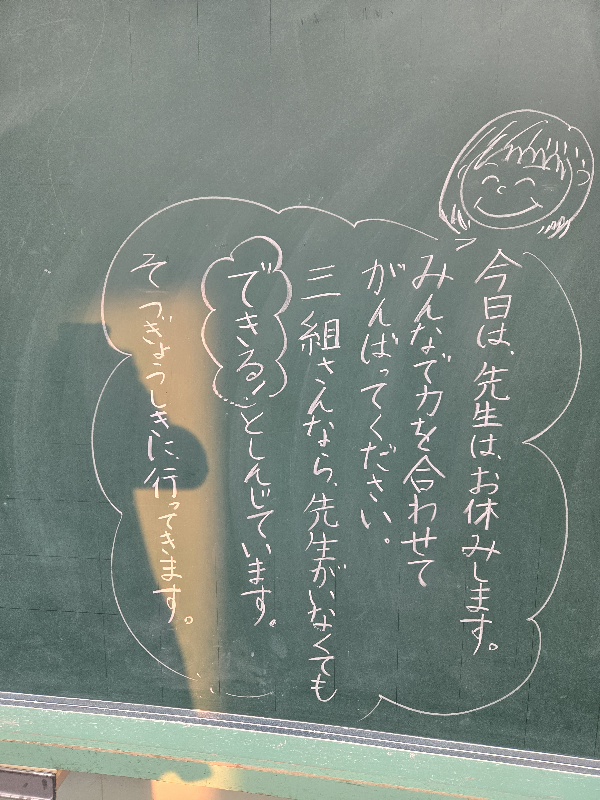 今日は、先生は、お休みします。
みんなで力を合わせて
がんばってください。
三組さんなら、先生がいなくても
できる！としんじています。
そつぎょうしきに、行ってきます。